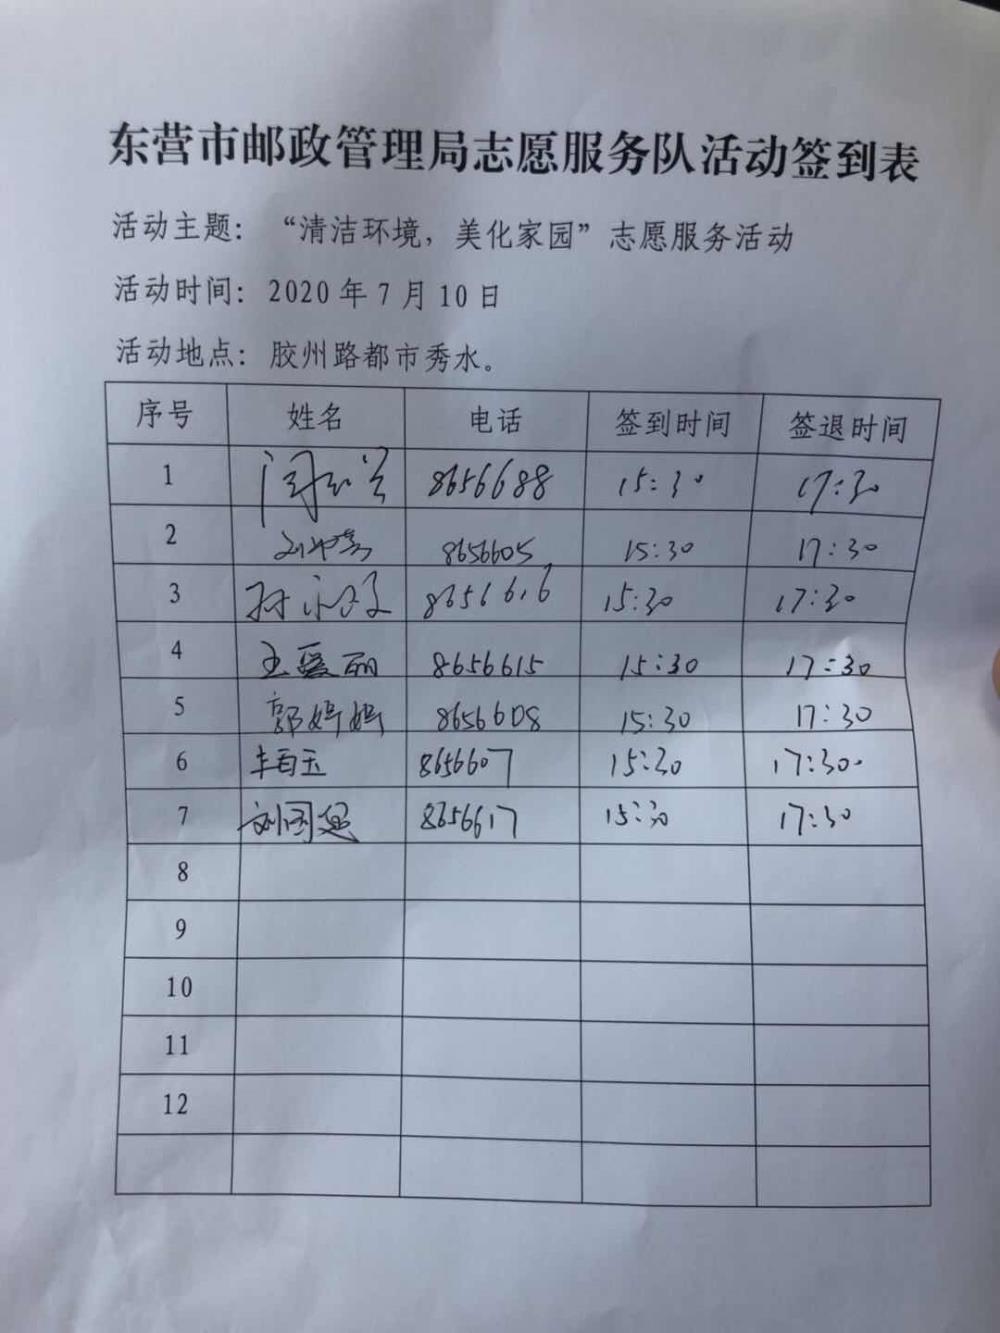 东营市邮政管理局志愿服务队活动签到表
活动主题：“清洁环境，美化家园”志愿服务活动
活动时间：2020 年 7 月 10 日
活动地点：胶州路都市秀水。
序号 姓名 电话 签到时间 签退时间
1 8656688 15:30 17:30
2 8656605 15:30 17:30
3 8656616 15:30 17:30
4 王爱丽 8656615 15:30 17:30
5 郭婷婷 8656608 15:30 17:30
6 8656607 15:30 17:30
7 刘国 8656617 15:30 17:30
8
9
10
11
12